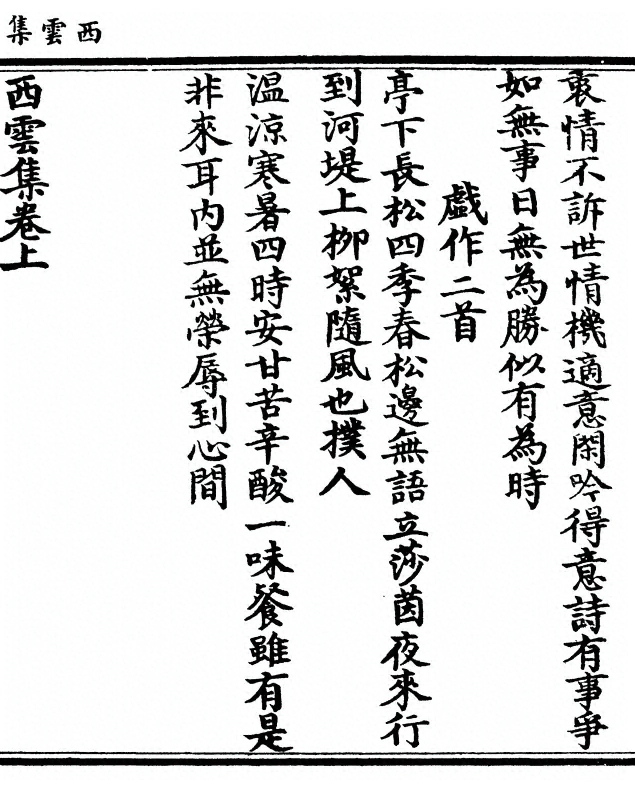 西雲集
衷情不訴世情機適意閑吟得意詩有事爭
如無事日無為勝似有為時
戲作二首
亭下長松四季春松邊無語立莎茵夜來行
到河堤上柳絮隨風也撲人
溫涼寒暑四時安甘苦辛酸一味餐雖有是
非來耳內並無榮辱到心間
西雲集卷上